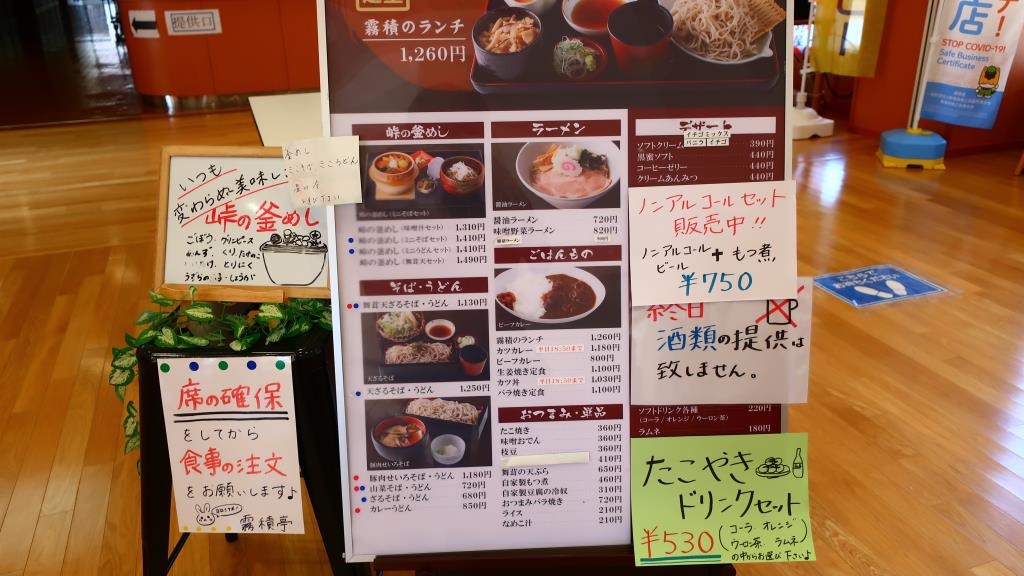 提供口
霧積のランチ
1,260円
店
デ!
STOP COVID-19!
Safe Business
Certificate
いつも
変わらぬ美味しい
峠の釜めし
ごぼう グリンピース
とりにく
釜めし
ミニそば ミニうどん
峠の釜めし
峠の釜めし(味噌汁セット) 1,310円
峠の釜めし(ミニそばセット) 1,410円
峠の釜めし(ミニうどんセット) 1,410円
峠の釜めし(舞茸天セット) 1,490円
そば・うどん
舞茸天ざるそば・うどん 1,130円
天ざるそば・うどん
天ざるそば・うどん 1,250円
豚肉せいろそば
豚肉せいろそば・うどん 1,180円
山菜そば・うどん 720円
ざるそば・うどん 680円
カレーうどん 850円
ラーメン
醤油ラーメン
醤油ラーメン 720円
味噌野菜ラーメン 820円
ごはんもの
ビーフカレー
霧積のランチ 1,260円
カツカレー 平日18:50まで 1,180円
ビーフカレー 800円
生姜焼き定食 1,100円
カツ丼 平日18:50まで 1,030円
バラ焼き定食 1,100円
おつまみ・単品
たこ焼き 360円
味噌おでん 360円
枝豆 360円
410円
舞茸の天ぷら 650円
自家製もつ煮 460円
自家製豆腐の冷奴 310円
おつまみバラ焼き 720円
ライス 210円
なめこ汁 210円
デザート
イチゴミックス
バニラ イチゴ
ソフトクリーム 390円
黒蜜ソフト 440円
コーヒーゼリー 440円
クリームあんみつ 440円
ノンアルコールセット
販売中!!
ノンアルコール
ビール + もつ煮
¥750
終日
酒類の提供は
致しません。
ソフトドリンク各種 220円
(コーラ/オレンジ/ウーロン茶)
ラムネ 180円
たこやき
ドリンクセット
¥530
(コーラ オレンジ
ウーロン茶 ラムネ)
の中からお選び下さい♪
席の確保
をしてから
食事の注文
をお願いします♪
霧積亭